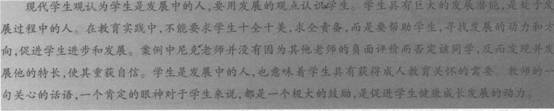 现代学生观认为学生是发展中的人,要用发展的观点认识学生。学生具有巨大的发展潜能,是处于发
展过程中的人。在教育实践中,不能要求学生十全十美,求全责备,而是要帮助学生,寻找发展的动力和方
向,促进学生进步和发展。案例中老师并没有因为其他老师的负面评价而否定该同学,反而发现并发
展他的特长,使其重获自信。学生是发展中的人,也意味着学生具有获得成人教育关怀的需要。教师的一
句关心的话语,一个肯定的眼神对于学生来说,都是一个极大的鼓励,是促进学生健康成长发展的动力。